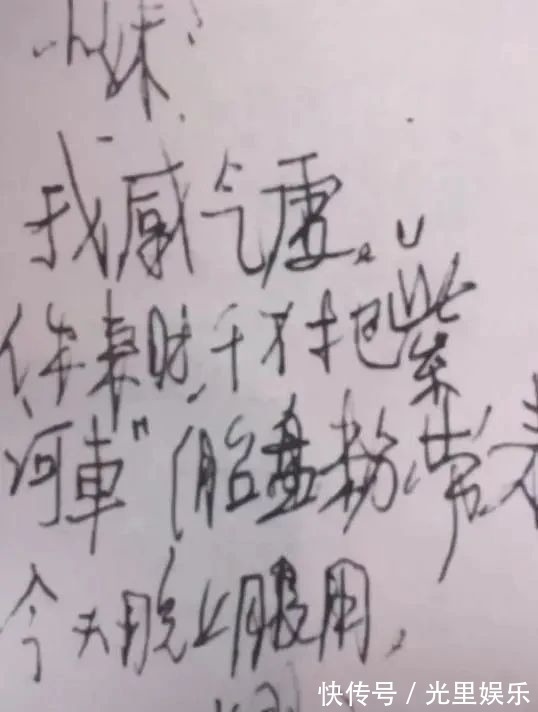 小妹:
我感气虚。“
你来时,千万把紫
河車”(胎盘粉)带来
今天晚上服用,
快传号 / 光里娱乐